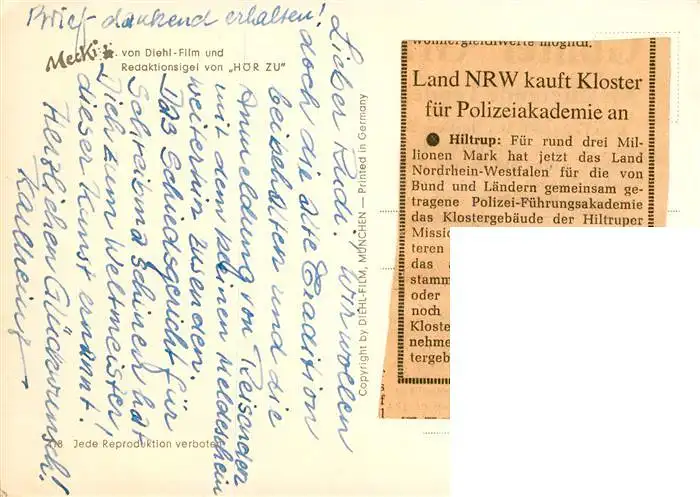 Brief dankend erhalten!
Mecki
von Diehl-Film und
Redaktionsigel von „HÖR ZU"
Lieber Rudi! Wir wollen
doch die alte Tradition
beibehalten und die
Anmeldung von Reisanden
mit dem kleinen Meldeschein
weiterhin zusenden.
Das Schiedsgericht für
Schreibmaschinen hat
Dich zum Weltmeister
dieser Kunst ernannt.
Herzlichen Glückwunsch!
Karlheinz
Copyright by DIEHL-FILM, MÜNCHEN — Printed in Germany
Jede Reproduktion verboten
wohnergleichwerte möglich.
Land NRW kauft Kloster
für Polizeiakademie an
Hiltrup: Für rund drei Mil-
lionen Mark hat jetzt das Land
Nordrhein-Westfalen die für die von
Bund und Ländern gemeinsam ge-
tragene Polizei-Führungsakademie
das Klostergebäude der Hiltruper
Missio
teren
das
stamm
oder
noch
Kloste
nehme
tergeb